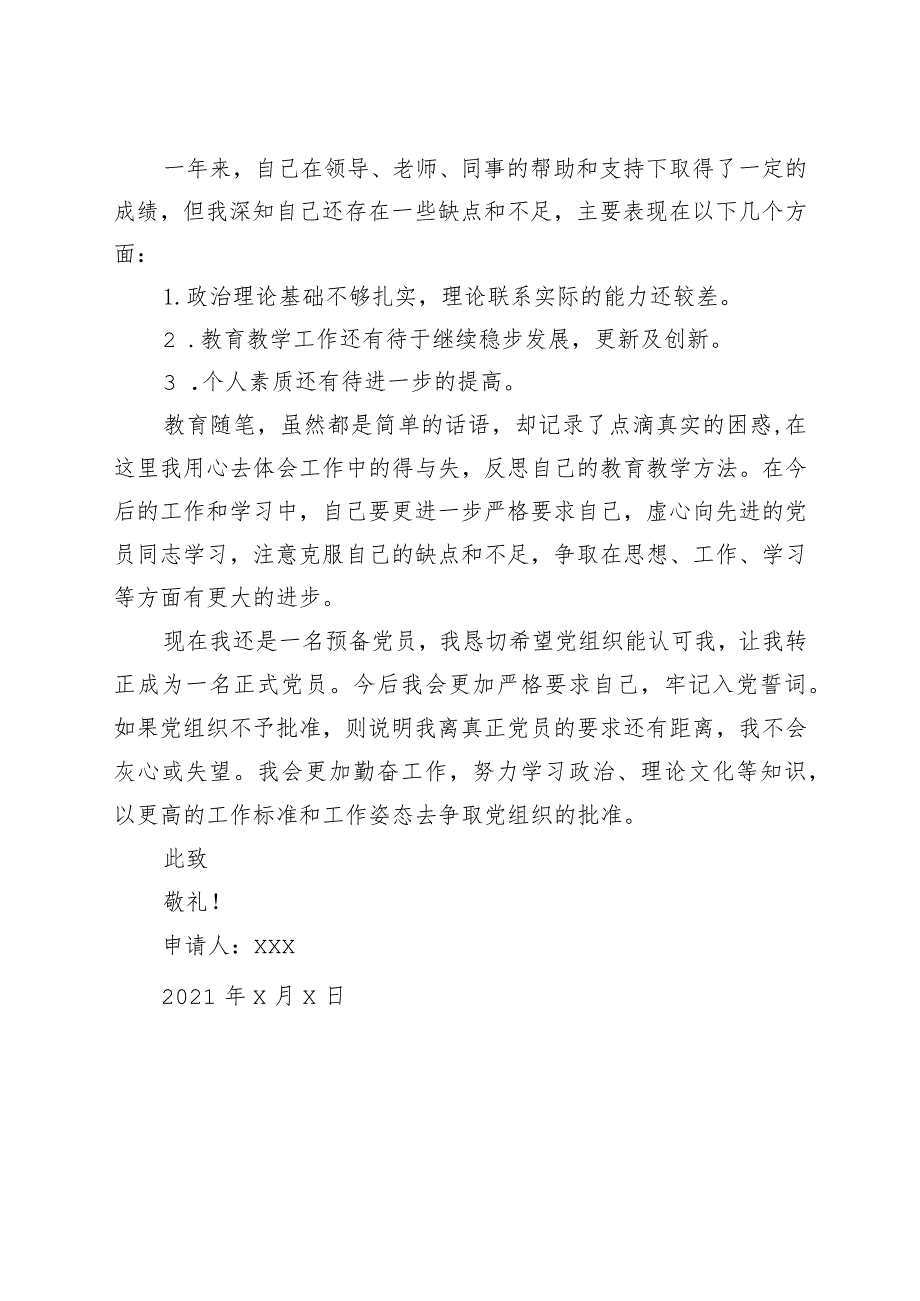 一年来，自己在领导、老师、同事的帮助和支持下取得了一定的
成绩，但我深知自己还存在一些缺点和不足，主要表现在以下几个方
面：
1.政治理论基础不够扎实，理论联系实际的能力还较差。
2 .教育教学工作还有待于继续稳步发展，更新及创新。
3 .个人素质还有待进一步的提高。
教育随笔，虽然都是简单的话语，却记录了点滴真实的困惑,在
这里我用心去体会工作中的得与失，反思自己的教育教学方法。在今
后的工作和学习中，自己要更进一步严格要求自己，虚心向先进的党
员同志学习，注意克服自己的缺点和不足，争取在思想、工作、学习
等方面有更大的进步。
现在我还是一名预备党员，我恳切希望党组织能认可我，让我转
正成为一名正式党员。今后我会更加严格要求自己，牢记入党誓词。
如果党组织不予批准，则说明我离真正党员的要求还有距离，我不会
灰心或失望。我会更加勤奋工作，努力学习政治、理论文化等知识，
以更高的工作标准和工作姿态去争取党组织的批准。
此致
敬礼！
申请人：XXX
2021 年 X 月 X 日